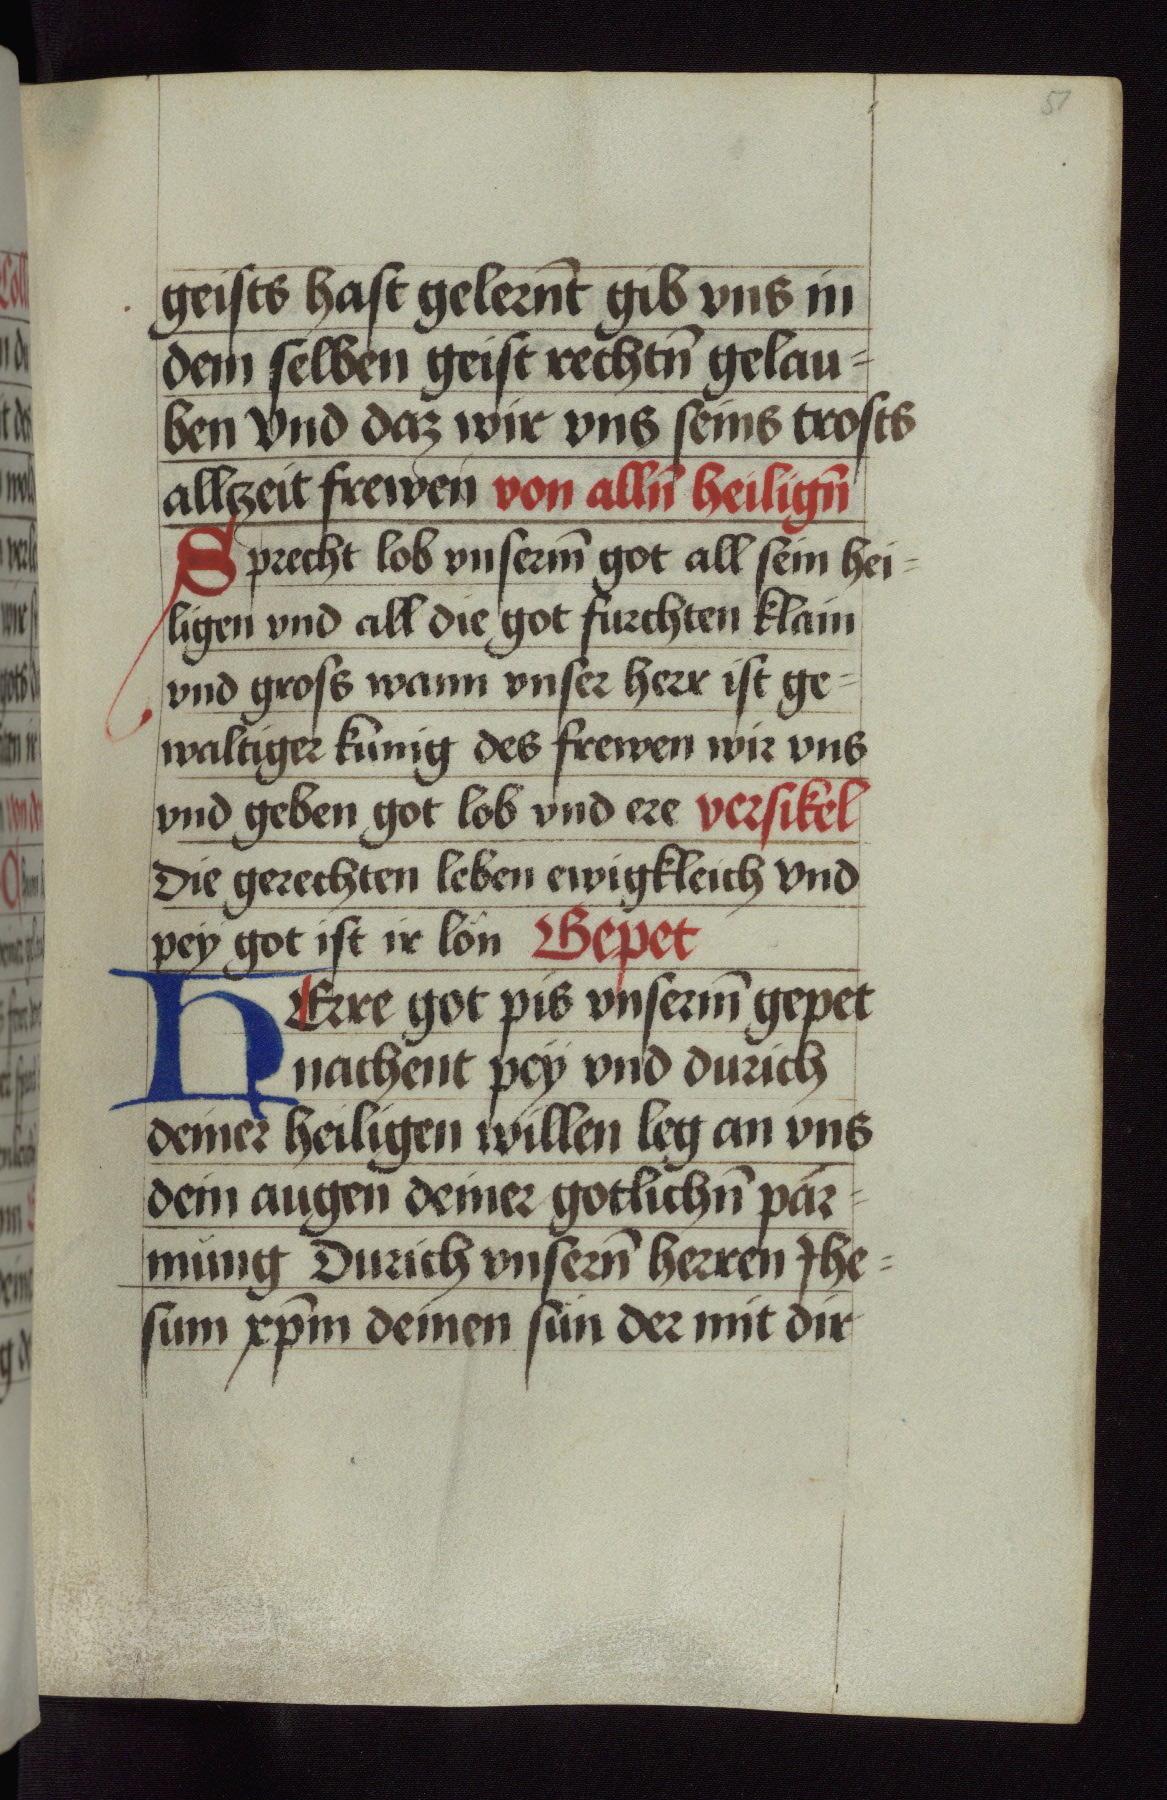 51
geists hast gelernt̄ gib vns in
dem selben geist rechtn̄ gelau=
ben Vnd daz wir vns seins trosts
allzeit frewen von alln̄ heilign̄
Sprecht lob vnserm̄ got all sein hei=
ligen vnd all die got furchten klain
vnd gross wann vnser herr ist ge=
waltiger künig des frewen wir vns
vnd geben got lob vnd ere versikel
Die gerechten leben ewigkleich Vnd
pey got ist ir lon Gepet
HErre got pis vnserm̄ gepet
nachent pey vnd durich
deiner heiligen willen leg an vns
dein augen deiner gotlichn̄ par=
mung Durich vnsern̄ herren Jhe=
sum xp̄m deinen sun der mit dir